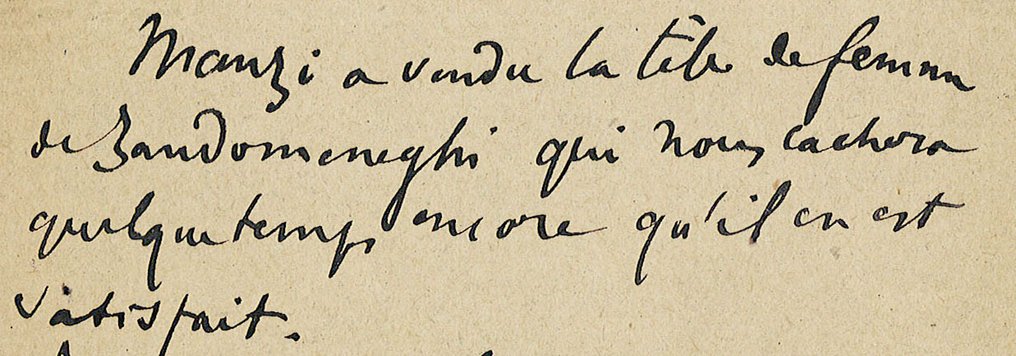 Manzi a vendu la tête de femme
de Zandomeneghi qui nous cachera
quelque temps encore qu'il en est
satisfait.